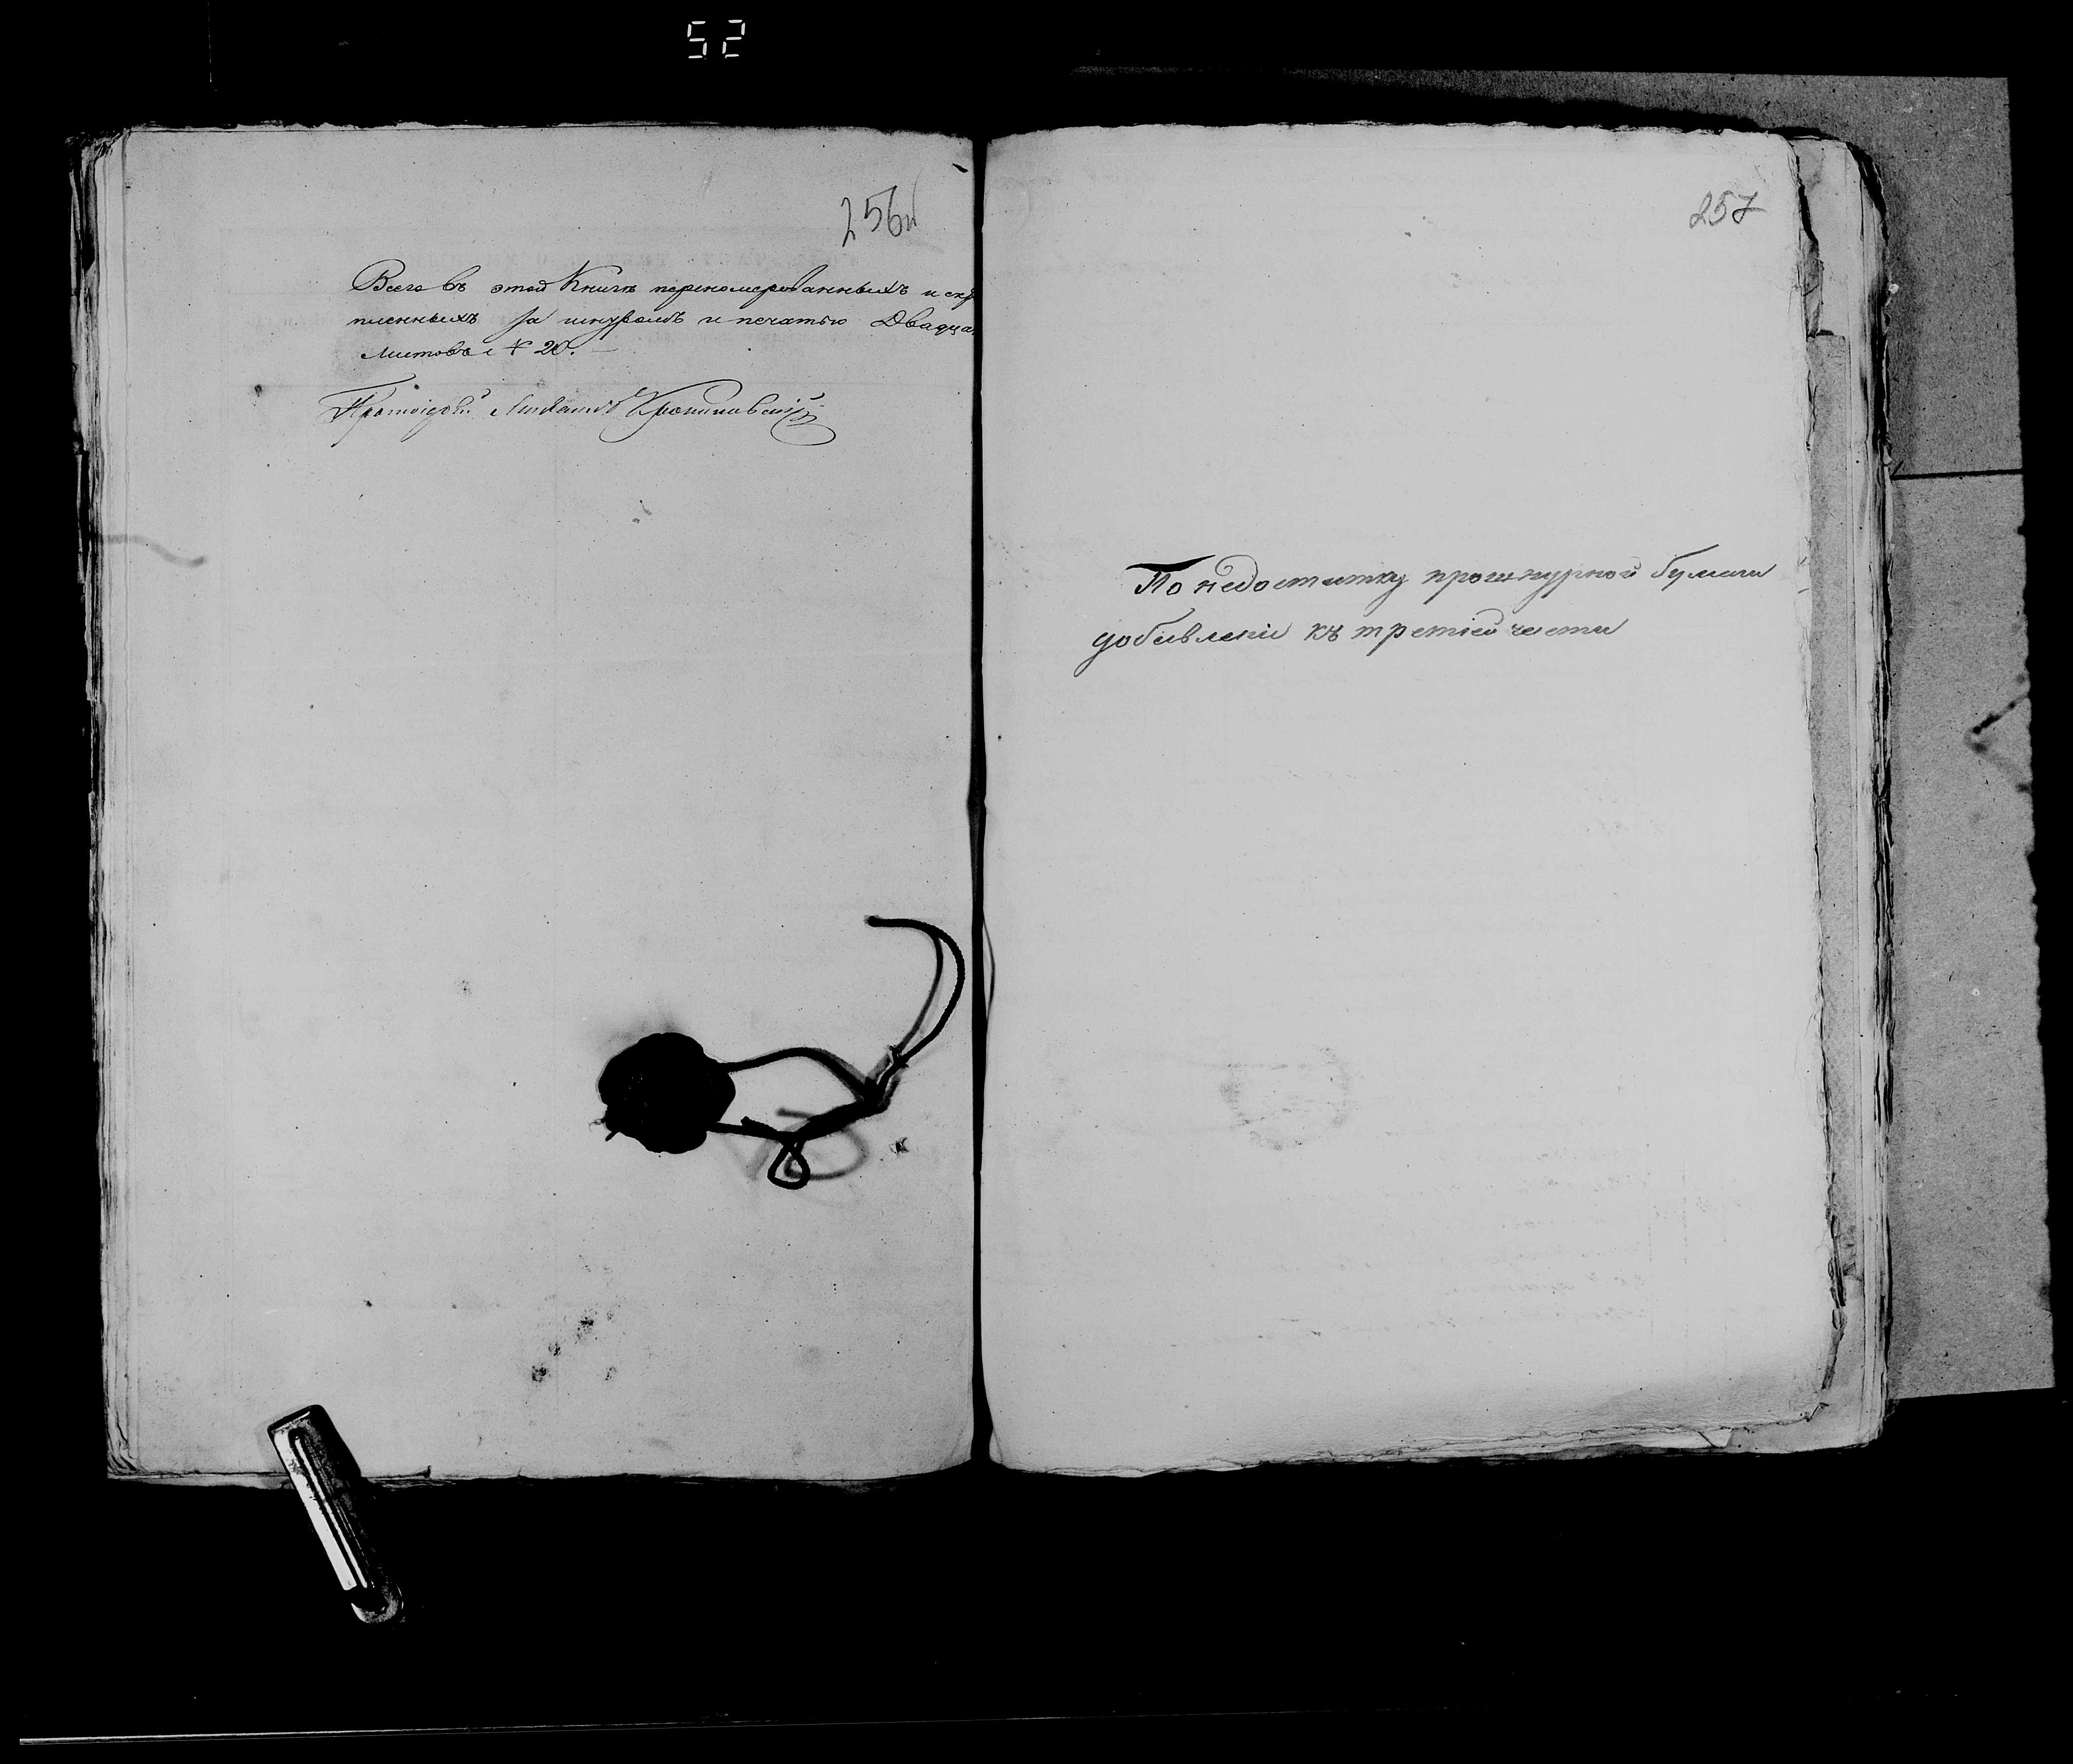 52
256
Всего въ этой Книгѣ перенομерованныхъ и скрѣ
пленныхъ за шнуромъ и печатью Двадца
Листовъ 20.
Протоіерей
257
По недостатку прошнурной бумаги
добавленіе къ третіей части